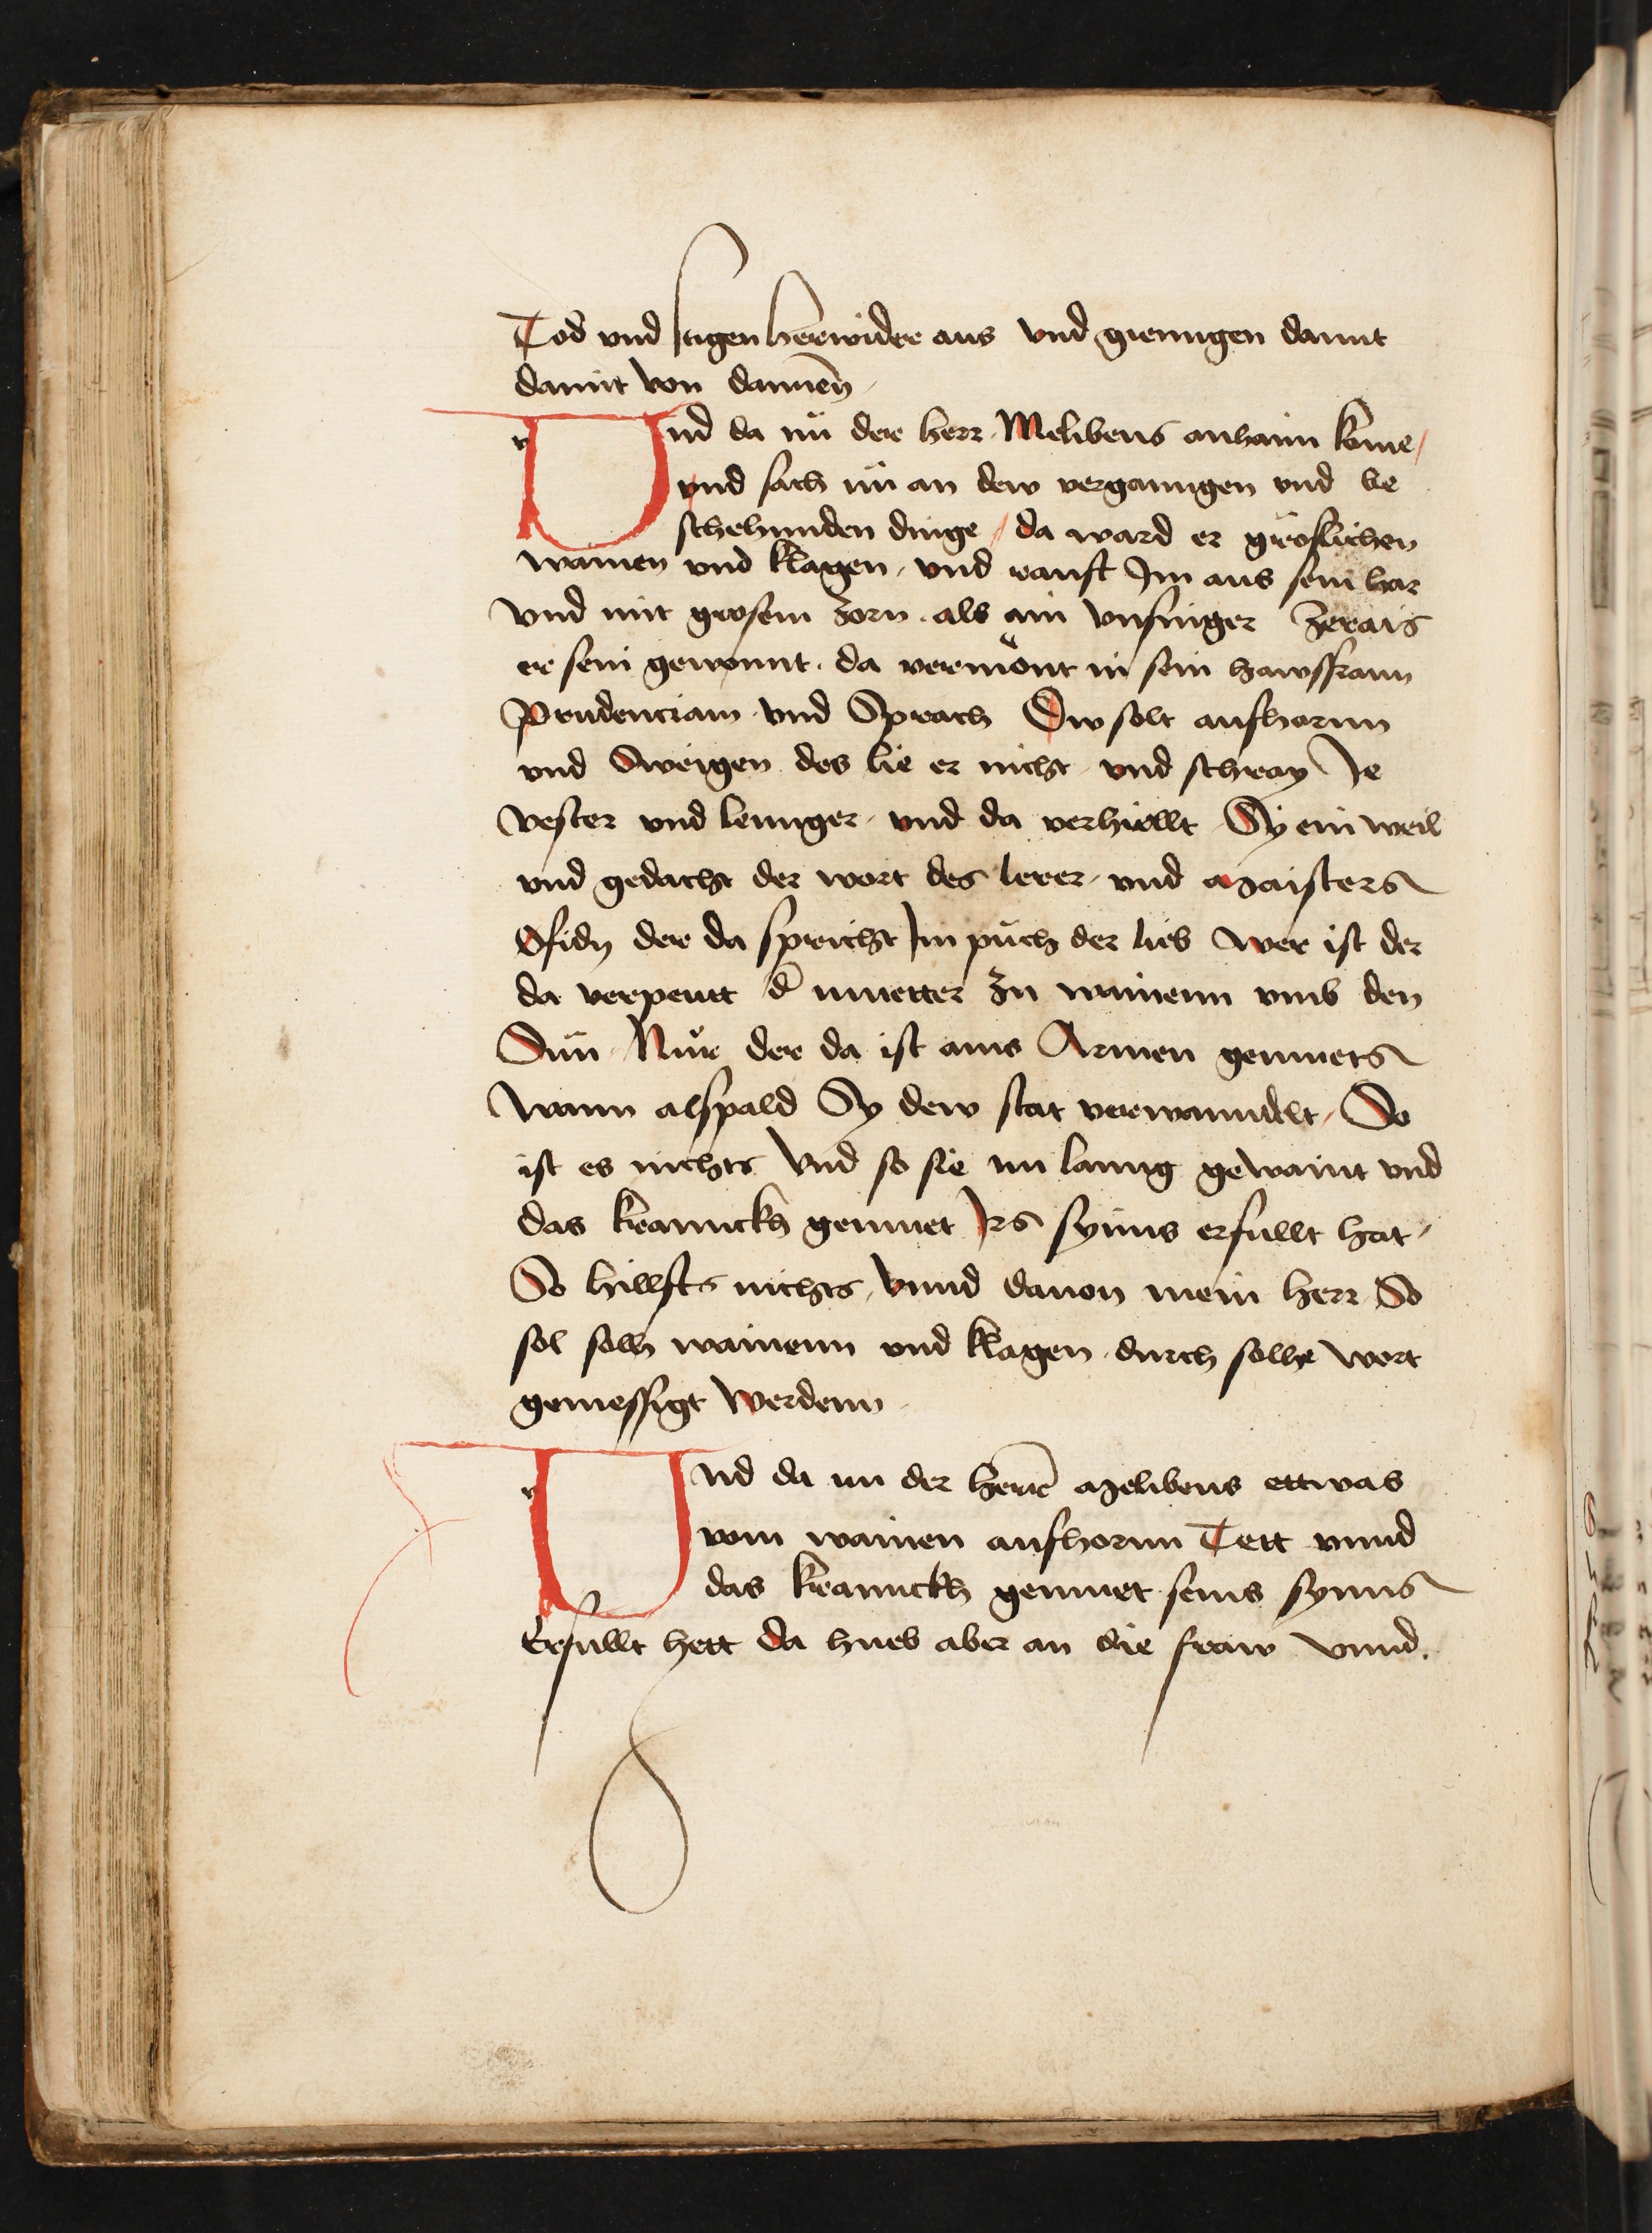 Tod vnd stigen herwider aus vnd giengen damit
damit von dannen̄
Und da nü der herr Melibeus anhaim kome /
vnd sach nü an dew vergangen vnd be
schehnnden dinge / da ward er gröslichen
wainen vnd klagen / vnd rauft Im aus sein har
vnd mit grosem zorn als ain vnsinger Zerais
er sein gewannt . da vermönt in sein hawsfraun
Prudenciam vnd Sprach Dw solt aufhornn
vnd Sweigen des lie er nicht vnd schray Ie
vester vnd lennger / vnd da verhiellt Sy ein weil
vnd gedacht der wort des lerer / vnd Maisters
Ofidy der da spricht Im püch der lieb wer ist der
da verpeutt d̄ muetter zu wainenn vmb den
Sün Nür der da ist ains Armen gemuets
wann alspald Sy dew stat verwanndelt / So
ist es nichts vnd so sie nu lanng gewaint vnd
das kranckh gemuet Irs synns erfullt hat /
So hillfts nichts / vnnd dauon mein herr So
sol solh wainenn vnd klagen durch solhe wort
gemessigt werdenn
Und da nu der herr̄ Melibeus ettwas
vom wainen aufhornn Tett vnnd
das kranckh gemuet seins synns
Erfullt hett da hueb aber an die fraw vnnd .